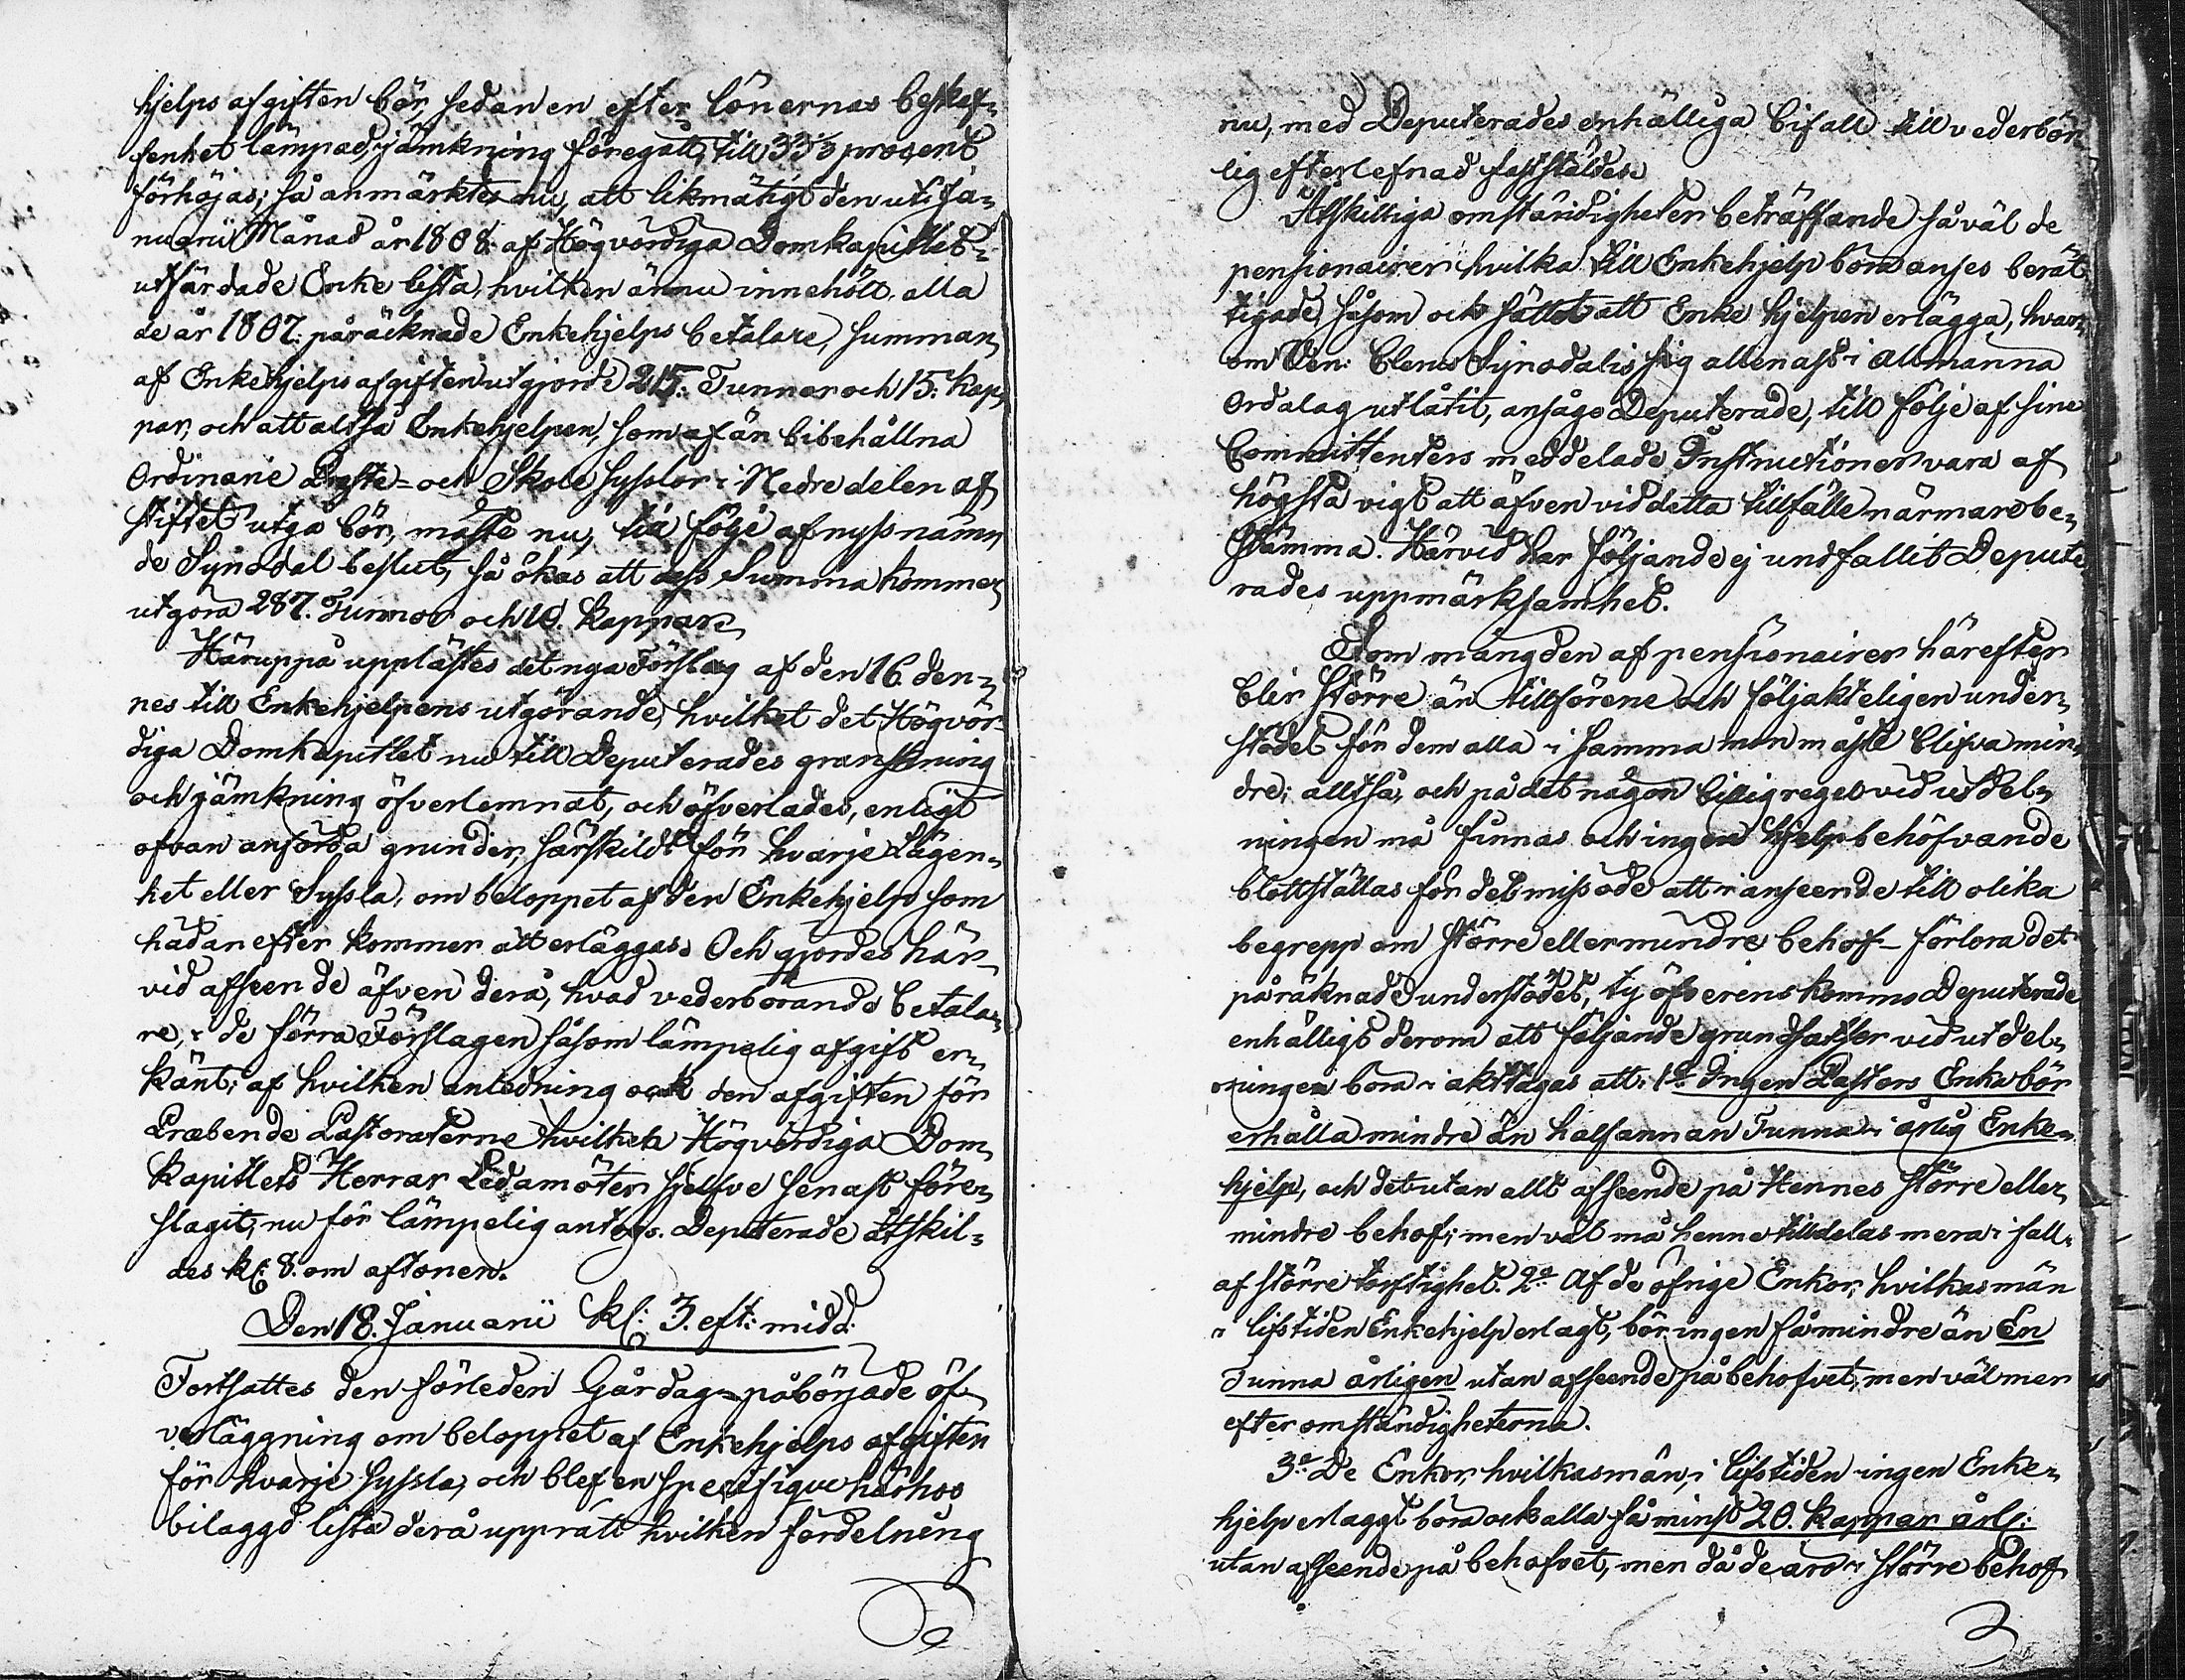 hjelps afgiften bör, sedan en efter lönernas beskaf-
fenhet lämpad jämkning föregått, till 33⅓ procent
förhöjas; så anmärktes nu, att likmätigt den uti Ja-
nuarii Månad år 1808. af Högvördiga Domkapitlet
utfärdade Enke lista, hvilken ännu innehölt alla
de år 1807. påräcknade Enkehjelps betalare, summan
af Enkehjelps afgiften utgjorde 215. Tunnor och 15. kap-
par, och att altså Enkehjelpen, som af än bibehållna
Ordinarie Preste- och Skole Sysslor i Nedre delen af
Stiftet utgå bör, måste nu, till följe af nyssnämn
de Synodal beslut, så ökas att dess Summa kommer
utgöra 287. Tunnor och 10. kappar.
Häruppå upplästes det nya Förslag af den 16 den-
nes till Enkehjelpens utgörande, hvilket det Högvör-
diga Domkapitlet nu till Deputerades granskning
och jämkning öfverlemnat, och öfverlades, enligt
ofvan anförda grunder, särskildt för hvarje Lägen-
het eller Syssla, om beloppet af den Enkehjelp som
hädanefter kommer att erläggas. Och gjordes här-
vid afseende äfven derå, hvad vederbörande betala-
re, i de förra Förslagen såsom lämpelig afgift er-
känt; af hvilken anledning ock den afgiften för
Præbende Pastoraterne hvilken Högvördiga Dom-
kapitlets Herrar Ledamöter sjelfve senast före-
slagit, nu för lämpelig antogs. Deputerade åtskil-
des kl: 8. om aftonen.
Den 18. Januarii kl: 3. eft: midd:
Fortsattes den förleden Gårdag påbörjade öf-
verläggning om beloppet af Enkehjelps afgiften
för hvarje syssla, och blef en specifique härhos
bilaggd lista derå upprätt hvilken fördelning
nu, med Deputerades enhälliga bifall till vederbör-
lig efterlefnad fastställdes.
Åtskilliga omständigheter beträffande såväl de
pensionairer hvilka till Enkehjelp böra anses berät
tigade, såsom ock sättet att Enke hjelpen erlägga, hvar-
om Ven: Clerus Synodalis sig allenast i allmänna
Ordalag utlåtit, ansågo Deputerade, till följe af sine
Committenters meddelade Instructioner vara af
högsta vigt att äfven vid detta tillfälle närmare be-
stämma. Härvid har följande ej undfallit Depute
rades uppmärksamhet.
Som mängden af pensionairer härefter
blir större än tillförene och följakteligen under-
stödet för dem alla i samma mon måste blifva min-
dre; alltså, och på det någon billig regel vid utdel-
ningen må finnas och ingen hjelpbehöfvande
blottställas för det missöde att i anseende till olika
begrepp om större eller mindre behof förlora det
påräknade understödet, ty öfverenskommo Deputerade
enhälligt derom att följande grundsattser vid utdel-
ningen böra i akttagas att: 1o Ingen Pastors Enka bör
erhålla mindre än half annan Tunna i årlig Enke-
hjelp, och det utan allt afseende på Hennes större eller
mindre behof; men väl må henne tilldelas mera i fall
af större torftighet. 2o Af de öfrige Enkor, hvilkas män
i lifstiden Enkehjelp erlagt, bör ingen få mindre än En
Tunna årligen utan afseende på behofvet, men väl mer
efter omständigheterna.
3o De Enkor, hvilkas män, i lifstiden ingen Enke-
hjelp erlaggt böra ock alla få minst 20. kappar årl:
utan afseende på behofvet, men då de äro i större behof
3